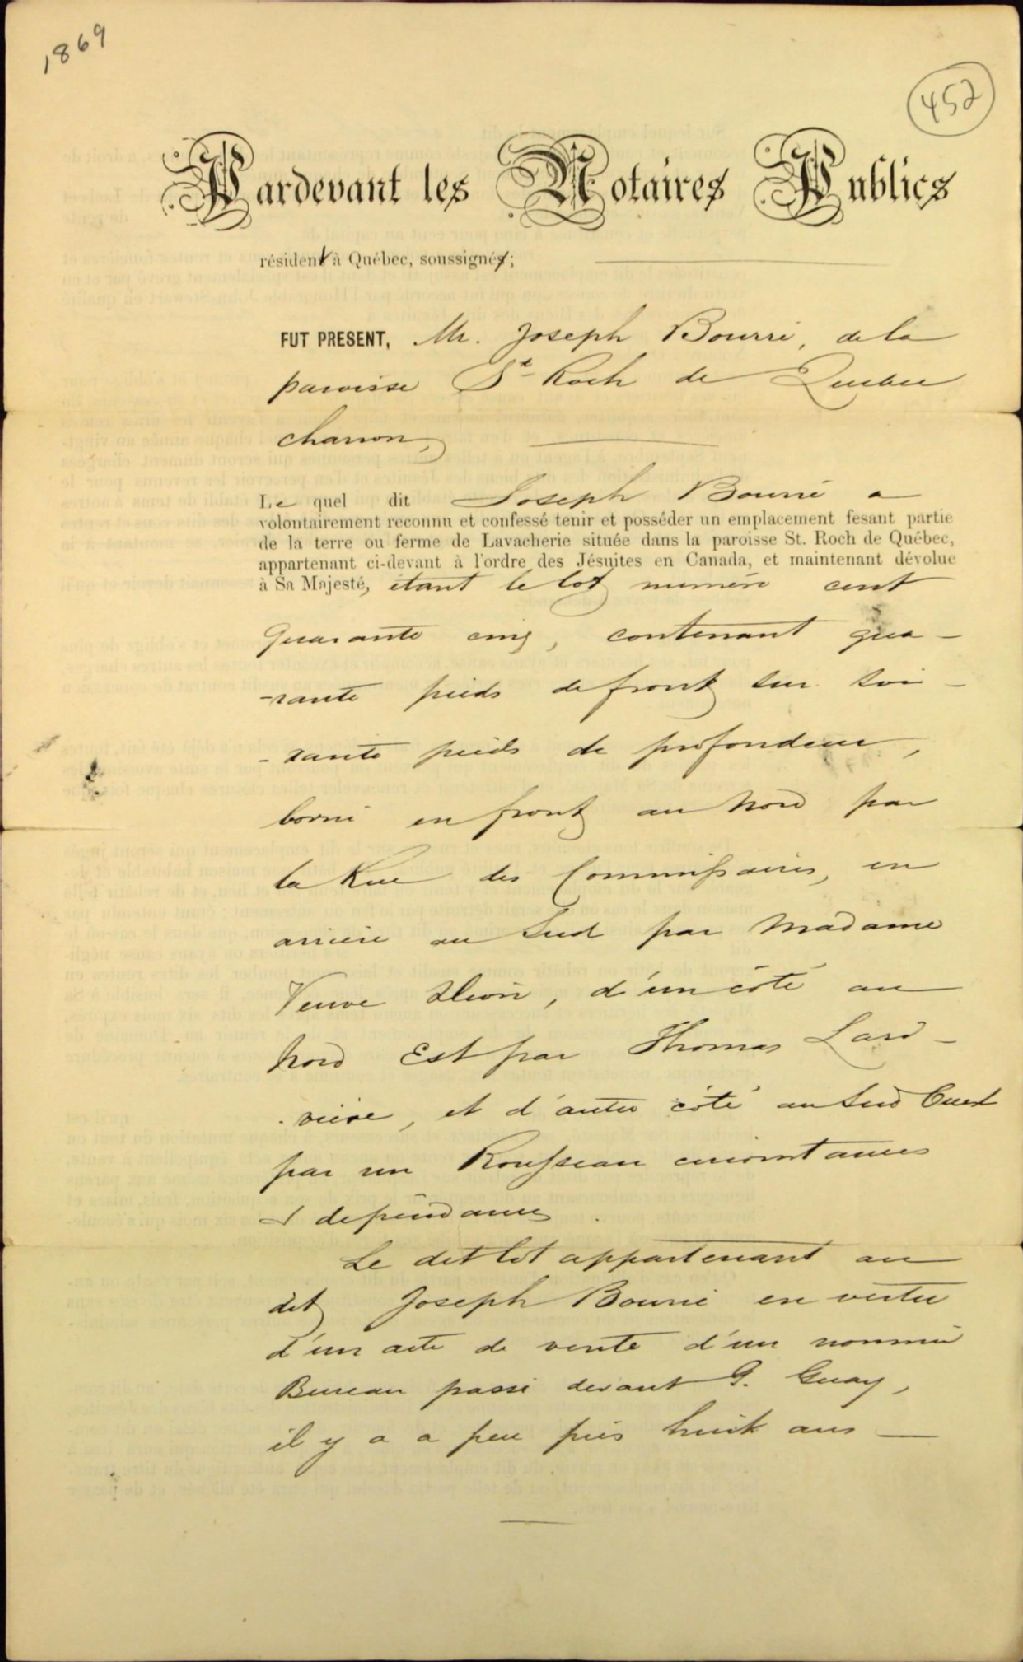 1869
452
Pardevant les Notaires Publics
résident à Québec, soussignés;
FUT PRESENT, Mr. Joseph Bourré, de la
paroisse St Roch de Quebec
charron,
Le quel dit Joseph Bourré a
volontairement reconnu et confessé tenir et posséder un emplacement fesant partie
de la terre ou ferme de Lavacherie située dans la paroisse St. Roch de Québec,
appartenant ci-devant à l'ordre des Jésuites en Canada, et maintenant dévolue
à Sa Majesté, étant le lot numéro cent
quarante cinq, contenant qua-
-rante pieds de front sur soi-
-xante pieds de profondeur,
borné en front au nord par
la Rue des Commissaires, en
arrière au Sud par Madame
Veuve, d'un côté au
Nord Est par Thomas Lari-
-vière, et d'autre côté au Sud Ouest
par un Rousseau circonstances
et dépendances.
Le dit lot appartenant au
dit Joseph Bourré en vertu
d'un acte de vente d'un nommé
Bureau passé devant G. Guay,
il y a a peu près huit ans